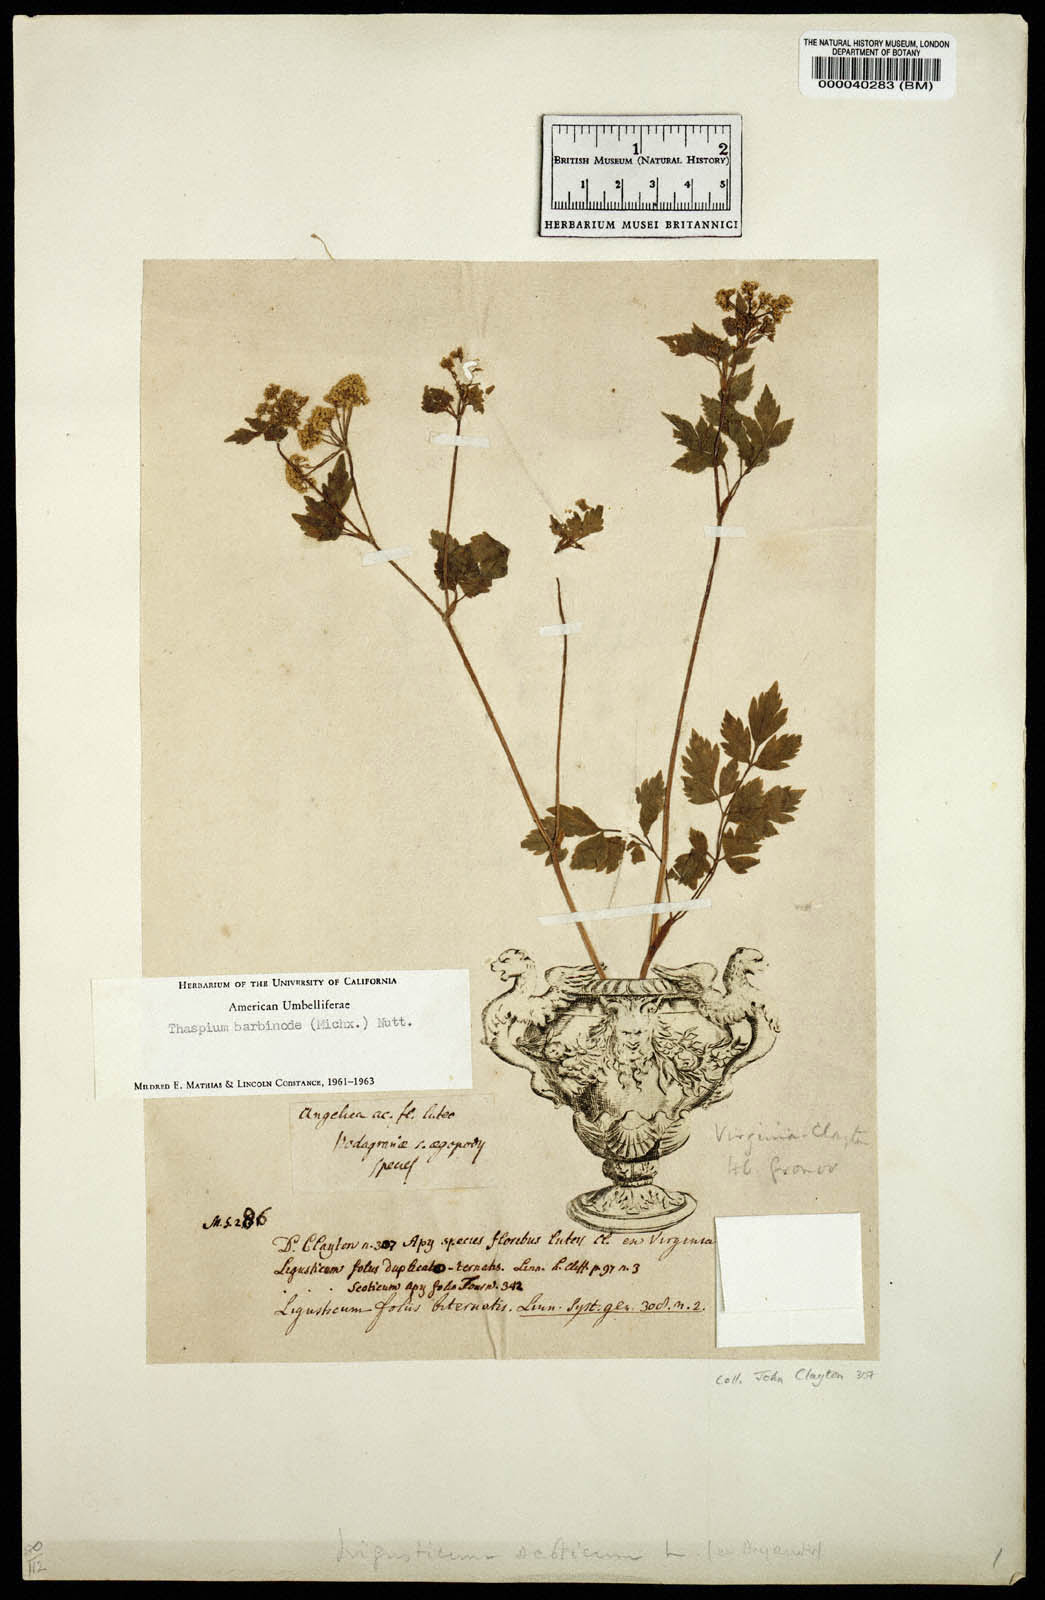 THE NATURAL HISTORY MUSEUM, LONDON
DEPARTMENT OF BOTANY
000040283 (BM)
1 2
BRITISH MUSEUM (NATURAL HISTORY)
1 2 3 4 5
HERBARIUM MUSEI BRITANNICI
HERBARIUM OF THE UNIVERSITY OF CALIFORNIA
American Umbelliferae
Thaspium barbinode (Michx.) Nutt.
MILDRED E. MATHIAS & LINCOLN CONSTANCE, 1961–1963
Angelica ac. fl. luteo
Podagrariæ s. ægopody
species
Virginia Clayton
Hb. Gronov
M.S. 286
D. Clayton n. 307 Apy species floribus luteis ex Virginia
Ligusticum foliis duplicato-ternatis. Linn. h. Cliff. p. 97 n. 3
Scoticum apy folio Tourn. 342
Ligusticum foliis biternatis. Linn. Syst. gen. 308. n. 2.
Coll. John Clayton 307
Ligusticum scoticum L.
1